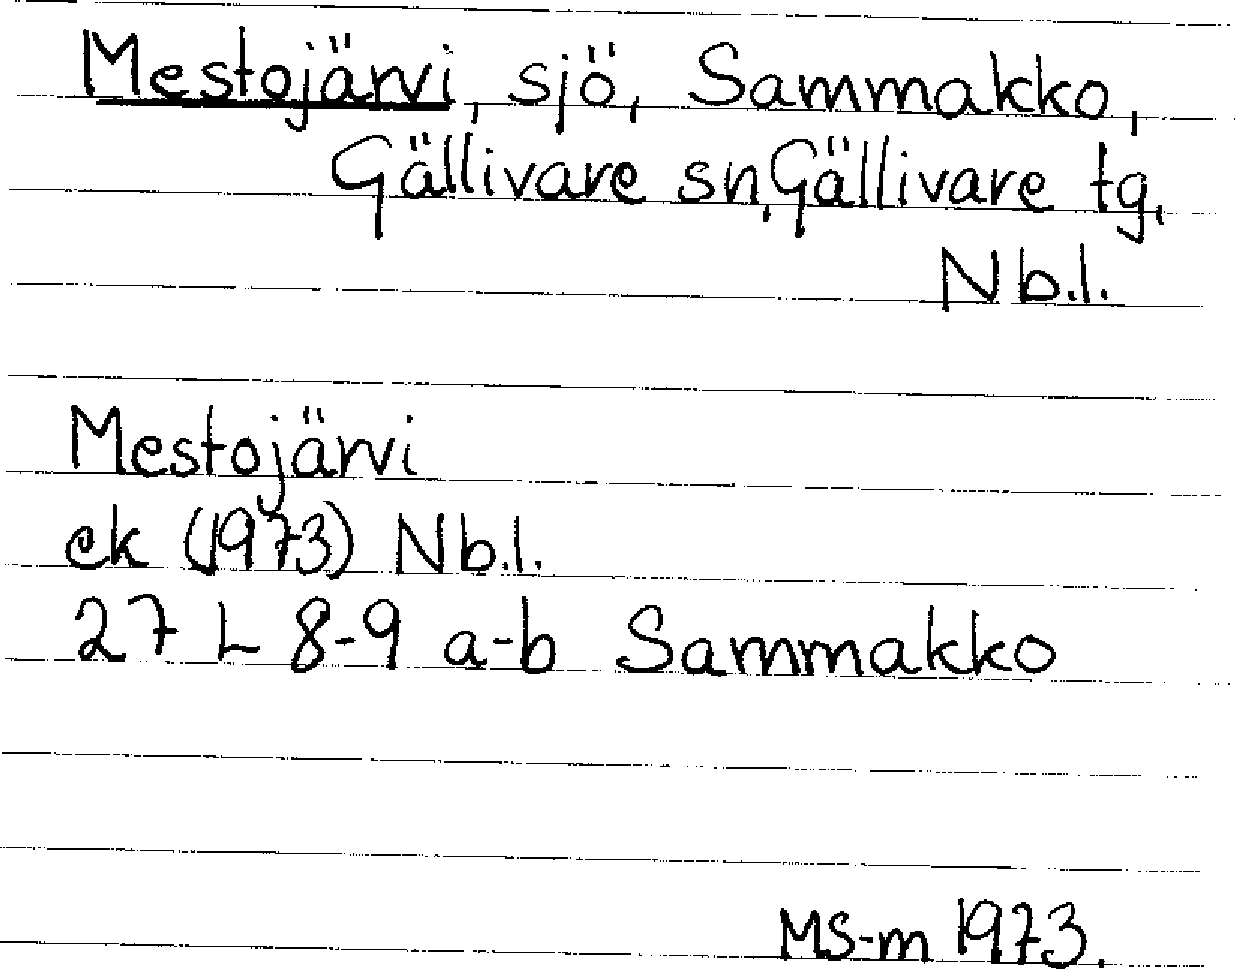 Mestojärvi, sjö, Sammakko,
Gällivare sn, Gällivare tg,
Nb.l.
Mestojärvi
ek (1973) Nb.l.
27 L 8-9 a-b Sammakko
MS-m 1973.